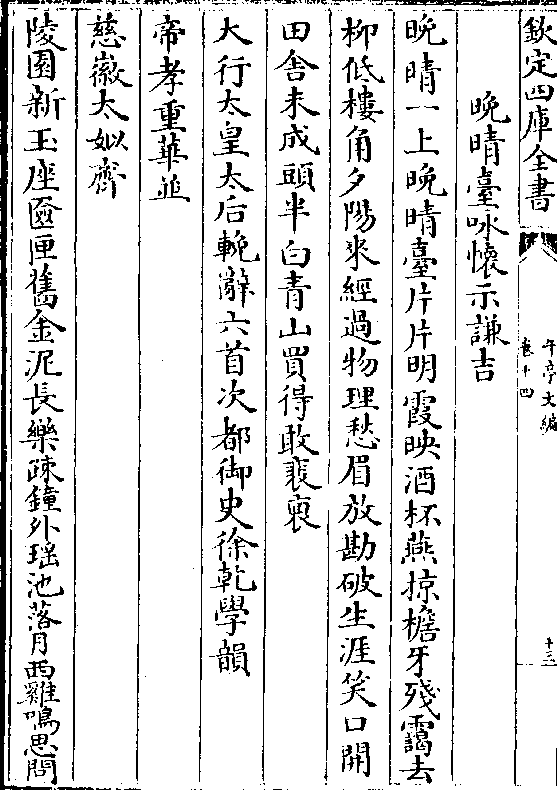 欽定四庫全書
午亭文編
卷十四
十三
晚晴臺咏懷示謙吉
晚晴一上晚晴臺片片明霞映酒杯燕掠檐牙殘靄去
柳低樓角夕陽來經過物理愁眉放勘破生涯笑口開
田舍未成頭半白青山買得敢裴裒
大行太皇太后輓辭六首次都御史徐乾學韻
帝孝重華並
慈徽太姒齊
陵園新玉座匳匣舊金泥長樂疎鐘外瑶池落月西雞鳴思問